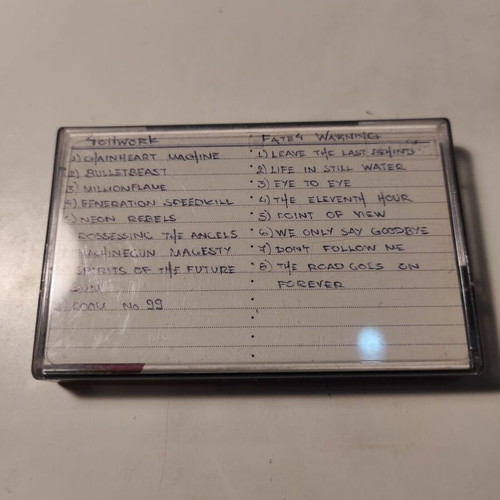 SOILWORK
1) CHAINHEART MACHINE
2) BULLETBEAST
3) MILLIONFLAME
4) GENERATION SPEEDKILL
5) NEON REBELS
POSSESSING THE ANGELS
MACHINEGUN MAGESTY
SPIRITS OF THE FUTURE
SUN
ROOM No 99
FATES WARNING
1) LEAVE THE PAST BEHIND
2) LIFE IN STILL WATER
3) EYE TO EYE
4) THE ELEVENTH HOUR
5) POINT OF VIEW
6) WE ONLY SAY GOODBYE
7) DONT FOLLOW ME
8) THE ROAD GOES ON
FOREVER